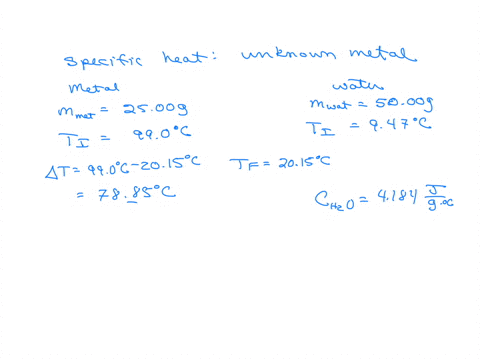 specific heat: unknown metal
metal
m_met = 25.00g
T_I = 99.0°C
ΔT = 99.0°C - 20.15°C
= 78.85°C
T_F = 20.15°C
water
m_wat = 50.00g
T_I = 9.47°C
C_H2O = 4.184 J/g·°C